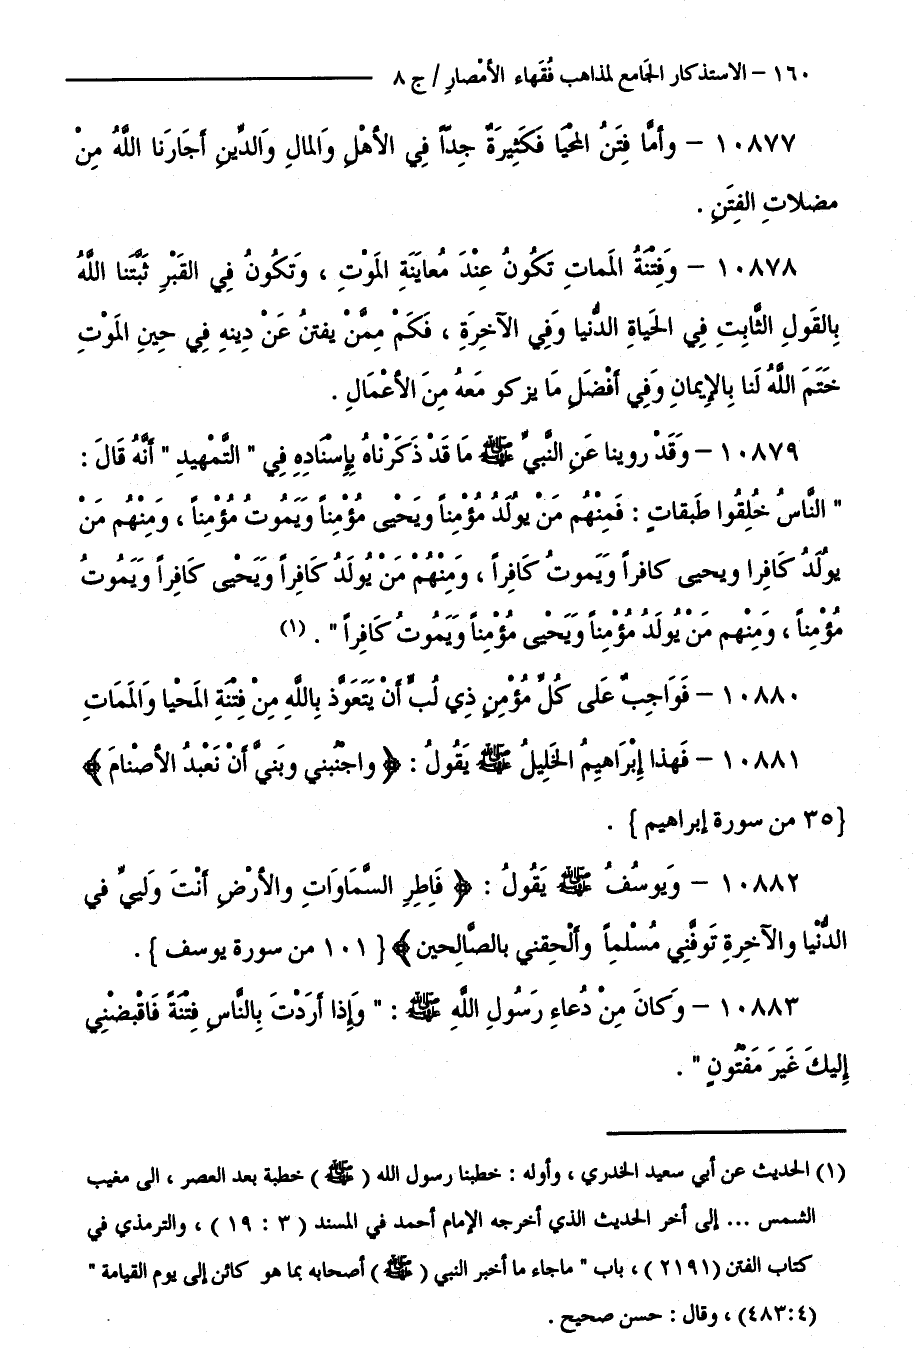 ١٦٠ – الاستذكار الجَامع لمذاهب فُقَهاء الأمْصارِ / ج ٨
١٠٨٧٧ – وأمَّا فِتَنُ المَحْيَا فَكَثِيرَةٌ جِدّاً فِي الأهْلِ وَالمالِ وَالدِّينِ أجَارَنَا اللَّهُ مِنْ
مضلاتِ الفِتَنِ .
١٠٨٧٨ – وَفِتْنَةُ المَماتِ تَكُونُ عِنْدَ مُعايَنَةِ المَوْتِ ، وَتَكُونُ فِي القَبْرِ ثَبَّتَنا اللَّهُ
بِالقَولِ الثَّابِتِ فِي الحَياةِ الدُّنيا وَفِي الآخِرَةِ ، فَكَمْ مِمَّنْ يفتنُ عَنْ دِينهِ فِي حِينِ المَوْتِ
خَتَمَ اللَّهُ لَنا بِالإِيمانِ وَفِي أفْضَلِ مَا يزكو مَعهُ مِنَ الأعْمَالِ .
١٠٨٧٩ – وَقَدْ روينا عَنِ النَّبيِّ ﷺ مَا قَدْ ذَكَرْناهُ بِإِسْنَادِهِ فِي " التَّمْهِيدِ " أنَّهُ قَالَ :
" النَّاسُ خُلِقُوا طَبقاتٍ : فَمِنْهُم مَنْ يولَدُ مُؤْمِناً ويَحْيى مُؤْمِناً وَيَمُوتُ مُؤْمِناً ، وَمِنْهُم مَنْ
يولَدُ كَافِرا ويحيى كافراً وَيَموتُ كَافِراً ، وَمِنْهُمْ مَنْ يُولَدُ كَافِراً وَيَحْيى كَافِراً وَيَمُوتُ
مُؤْمِناً ، وَمِنْهم مَنْ يُولَدُ مُؤْمِناً وَيَحْيى مُؤْمِناً وَيَمُوتُ كَافِراً " . (١)
١٠٨٨٠ – فَوَاجِبٌ عَلى كُلِّ مُؤْمِنٍ ذِي لُبٍّ أنْ يَتَعَوَّذ بِاللَّهِ مِنْ فِتْنَةِ المَحْيا وَالمَمَاتِ
١٠٨٨١ – فَهذا إِبْرَاهِيمُ الخَلِيلُ ﷺ يَقُولُ : ﴿ واجْنُبني وبَنيَّ أنْ نَعَبْدُ الأصْنامَ ﴾
{٣٥ من سورة إبراهيم } .
١٠٨٨٢ – وَيوسُفُ ﷺ يَقُولُ : ﴿ فَاطِرِ السَّمَاوَاتِ والأرْضِ أنْتَ وَليِيِّ في
الدُّنْيا والآخِرِةِ تَوفَّنِي مُسْلماً وألْحِقني بالصَّالِحين ﴾{ ١٠١ من سورة يوسف } .
١٠٨٨٣ – وَكانَ مِنْ دُعاءِ رَسُولِ اللَّهِ ﷺ : " وَإِذا أرَدْتَ بِالنَّاسِ فِتْنَةً فَاقْبضْنِي
إِليكَ غَيرَ مَفْتُونٍ " .
(١) الحديث عن أبي سعيد الخدري ، وأوله : خطبنا رسول الله ( ﷺ ) خطبة بعد العصر ، الى مغيب
الشمس ... إلى أخر الحديث الذي أخرجه الإمام أحمد في المسند ( ٣ : ١٩ ) ، والترمذي في
كتاب الفتن (٢١٩١ ) ، باب " ماجاء ما أخبر النبي ( ﷺ ) أصحابه بما هو كائن إلى يوم القيامة "
(٤٨٣:٤) ، وقال : حسن صحيح .